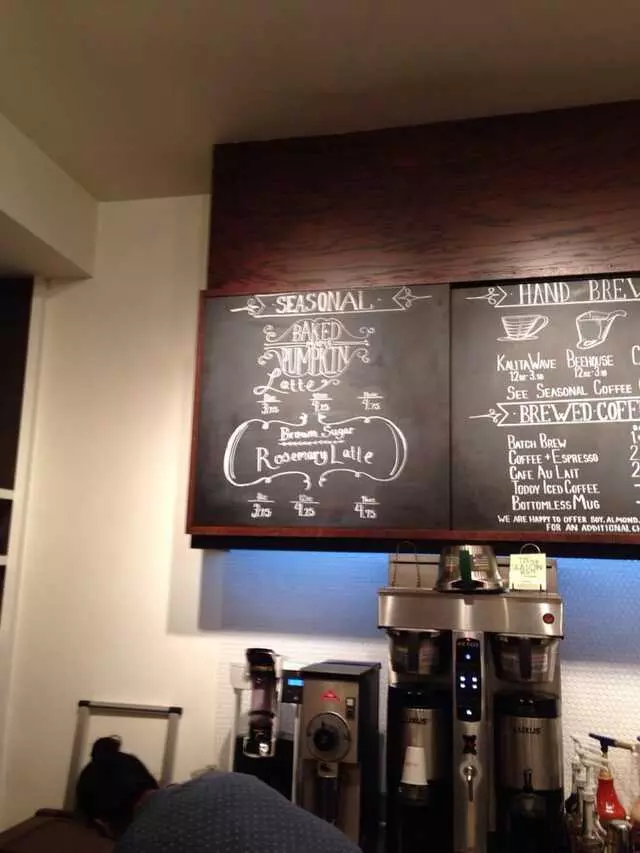 SEASONAL
BAKED
PUMPKIN
Latte
3.75 4.25 4.75
Brown Sugar
Rosemary Latte
3.75 4.25 4.75
HAND BREW
KALITA WAVE BEEHOUSE
SEE SEASONAL COFFEE
BREWED COFF
BATCH BREW
COFFEE + ESPRESSO
CAFE AU LAIT
TODDY ICED COFFEE
BOTTOMLESS MUG
WE ARE HAPPY TO OFFER SOY, ALMOND,
FOR AN ADDITIONAL
LUXUS
LUXUS